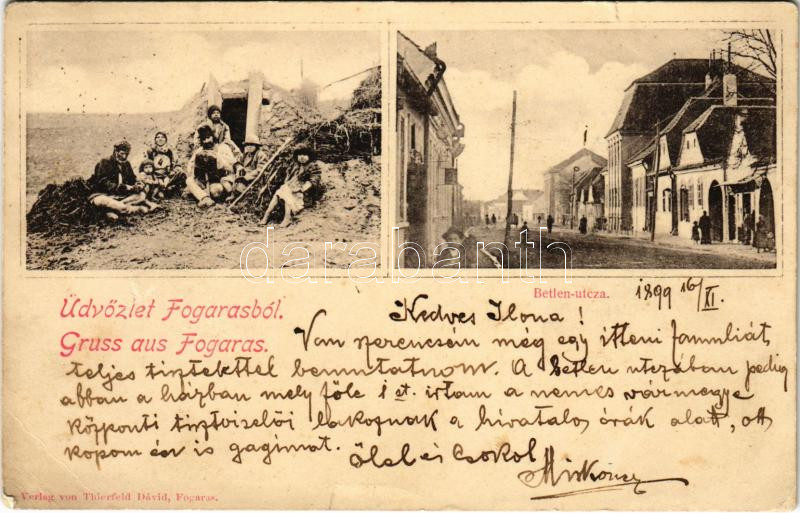 Betlen-utcza.
1899 16/XI.
Üdvözlet Fogarasból.
Gruss aus Fogaras.
Kedves Ilona!
Van szerencsém még egy itteni famuliát,
teljes tisztelettel bemutatnom. A betlen utczában pedig
abban a házban mely föle 1 et. irtam a nemes vármegye
központi tisztviselöi laknak a hivatalos órák alatt, ott
kopom én is gagimat.
Ölel és Csókol
Verlag von Thierfeld Dávid, Fogaras.
darabanth